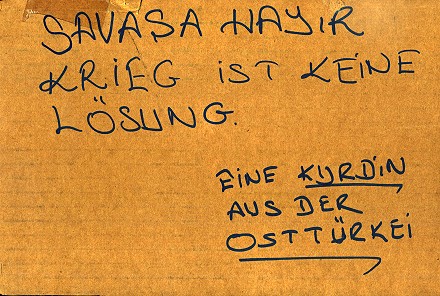 SAVAŞA HAYIR
KRIEG iST KEINE
LÖSUNG.
EiNE KURDiN
AUS DER
OSTTÜRKEi